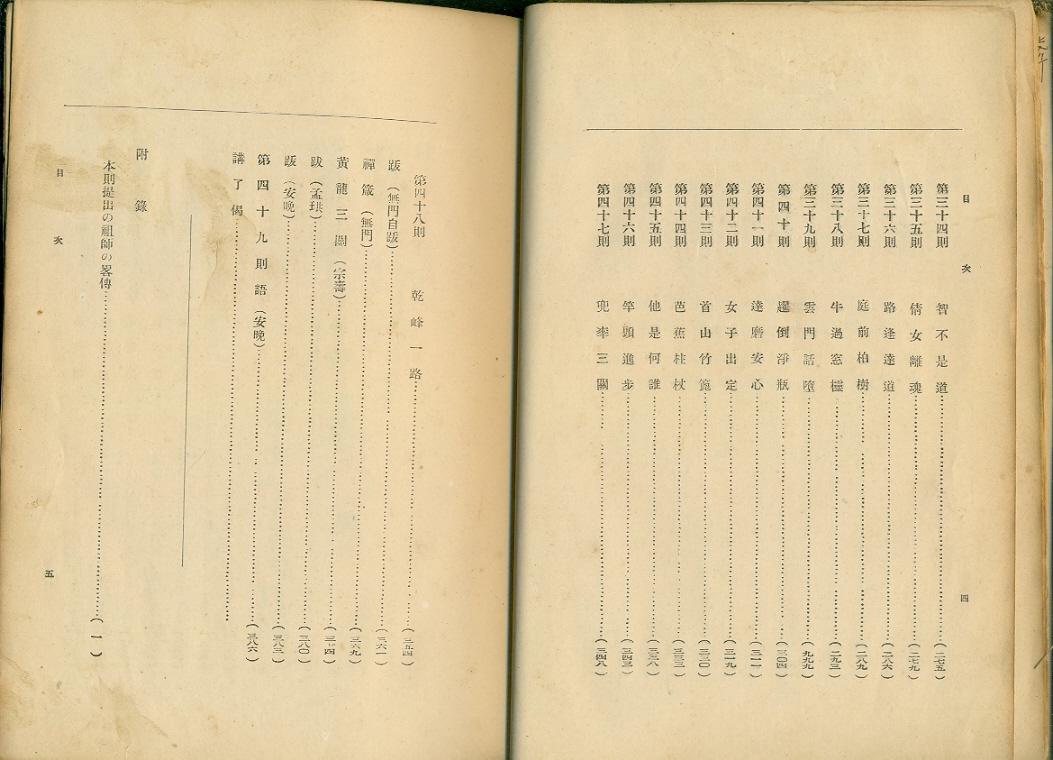 目次
四
第三十四則 智不是道 (二七五)
第三十五則 倩女離魂 (二七九)
第三十六則 路逢達道 (二八六)
第三十七則 庭前柏樹 (二八九)
第三十八則 牛過窓櫺 (二九三)
第三十九則 雲門話墮 (九九九)
第四十則 趯倒淨瓶 (三〇四)
第四十一則 達磨安心 (三一一)
第四十二則 女子出定 (三一九)
第四十三則 首山竹篦 (三三〇)
第四十四則 芭蕉柱杖 (三三三)
第四十五則 他是何誰 (三三八)
第四十六則 竿頭進步 (三四三)
第四十七則 兜率三關 (三四八)
第四十八則 乾峰一路 (三五四)
跋(無門自跋) (三六一)
禪箴(無門) (三六九)
黃龍三關(宗壽)
跋(孟珙) (三八〇)
跋(安晩) (三八三)
第四十九則語(安晩) (三八六)
講了偈
附錄
本則提出の祖師の畧傳 (一)
目次
五